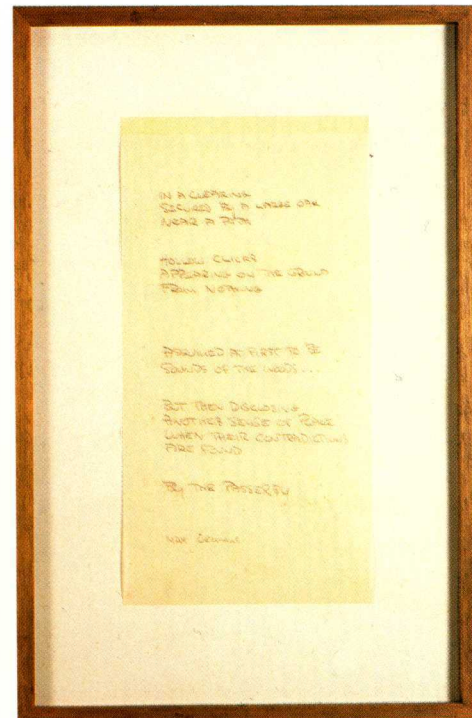 IN A CLEARING
SECURED BY A LARGE OAK
NEAR A PATH
HOLLOW CLICKS
APPEARING ON THE GROUND
FROM NOTHING
ASSUMED AT FIRST TO BE
SOUNDS OF THE WOODS...
BUT THEN DISCLOSING
ANOTHER SENSE OF PLACE
WHEN THEIR CONTRADICTIONS
ARE FOUND
BY THE PASSERBY
MAX